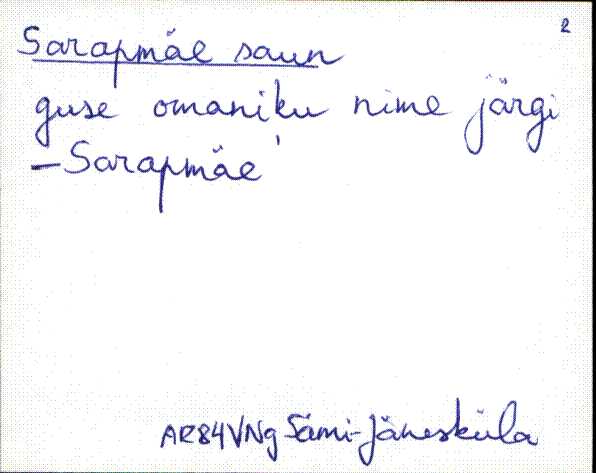 2
Sarapmäe saun
guse omaniku nime järgi
– Sarapmäe
AR84VNg Sämi-Jänesküla